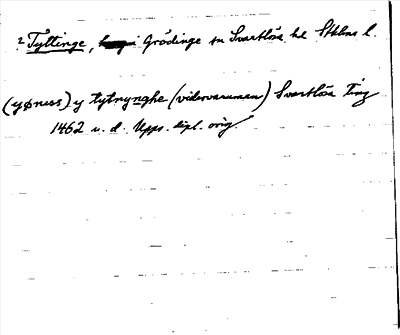 ² Tyttinge, Grödinge sn Svartlösa hd Sthlms l.
(yøness) y tytnynghe (vidervarumen) Svartlösa ting
1462 u. d. Upps. dipl. orig.